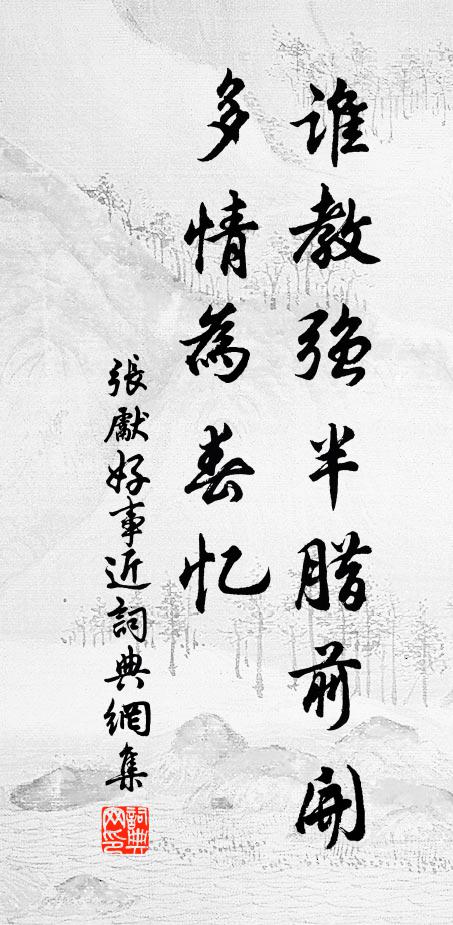 誰教强半腊前開
多情為春忆
張獻好事近詞典網集
詞典网印